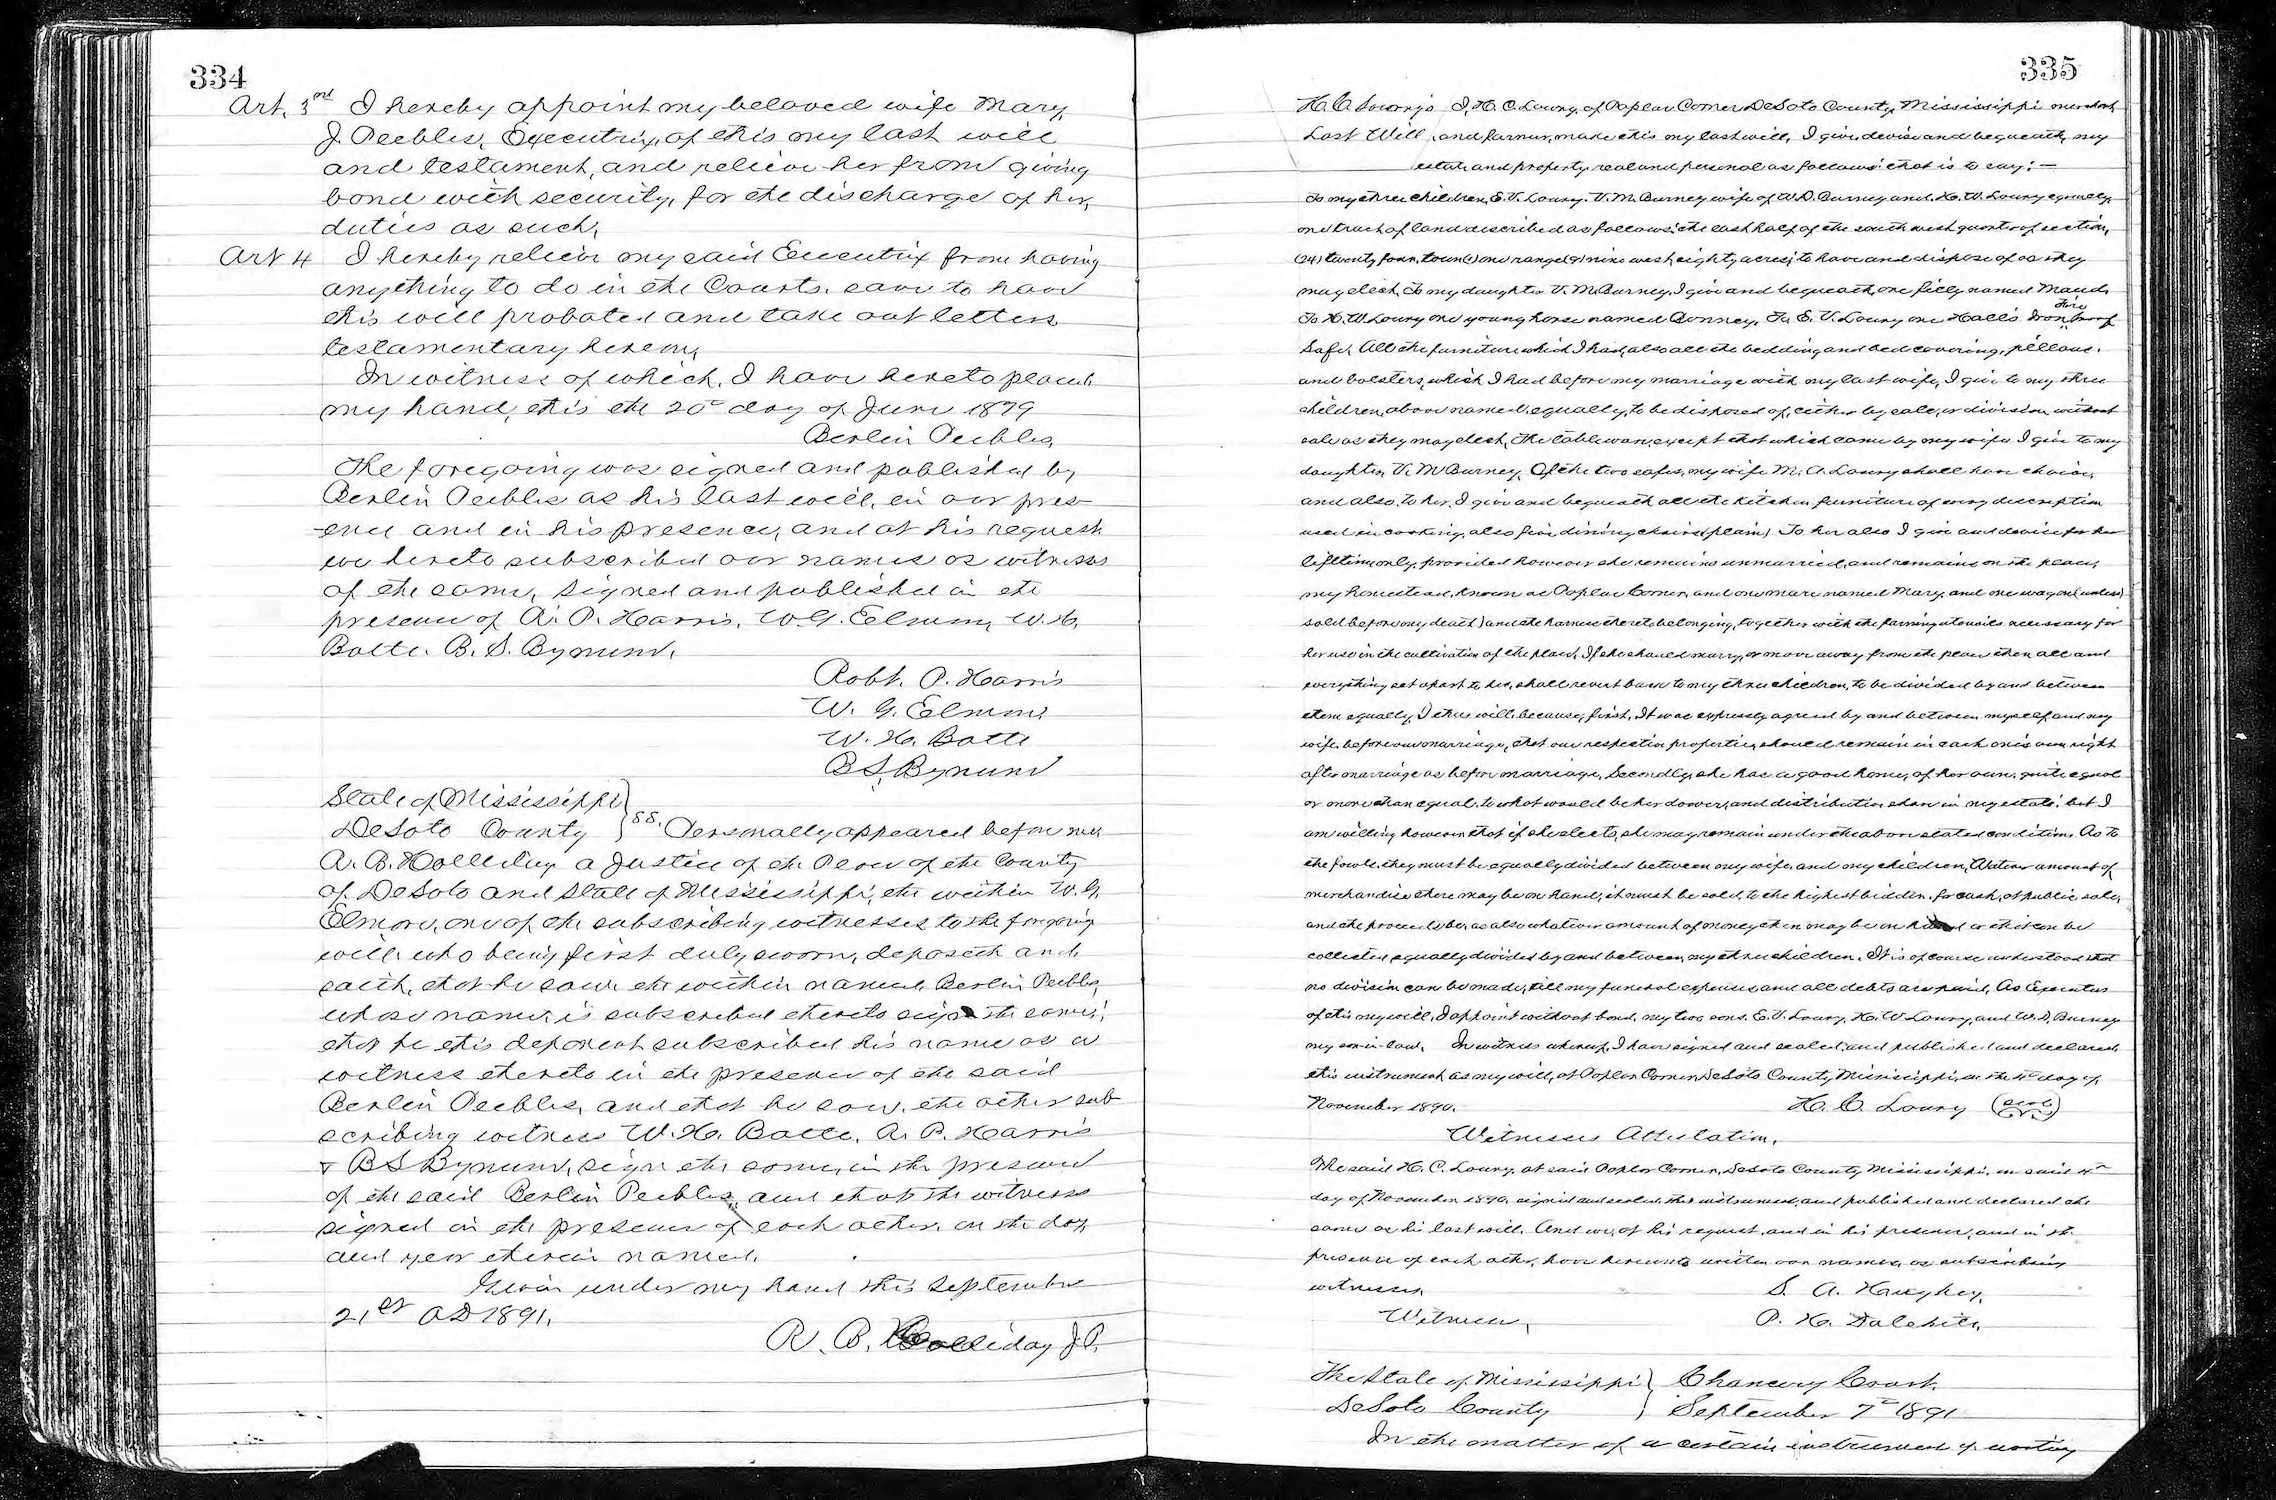 334
Art. 3rd I hereby appoint my beloved wife Mary
J. Peebles, Executrix, of this my last will
and testament, and relieve her from giving
bond with security, for the discharge of her
duties as such,
Art 4 I hereby relieve my said Executrix from having
anything to do in the Courts. save to have
this will probated and take out letters
testamentary hereon,
In witness of which, I have hereto placed
my hand, this the 20th day of June 1879
Berlin Peebles,
The foregoing was signed and published by
Berlin Peebles as his last will, in our pres-
-ence and in his presence, and at his request
we hereto subscribed our names as witnesses
of the same, Signed and published in the
presence of R. P. Harris, W. G. Elmore, W. H.
Batte. B. S. Bynum,
Robt. P. Harris
W. G. Elmore
W. H. Batte
B S Bynum
State of Mississippi
DeSoto County } SS. Personally appeared before me
R. B. Holliday a Justice of the Peace of the County
of DeSoto and State of Mississippi, the within W. G.
Elmore, one of the subscribing witnesses to the foregoing
will who being first duly sworn, deposeth and
saith, that he saw the within named Berlin Peebles,
whose name is subscribed thereto sign the same,
that he this deponent subscribed his name as a
witness thereto in the presence of the said
Berlin Peebles, and that he saw the other sub
scribing witness W. H. Batte. R. P. Harris
+ B S Bynum, sign the same, in the presence
of the said Berlin Peebles and that the witnesses
signed in the presence of each other, on the day
and year therein named.
Given under my hand this September
21st AD 1891.
R. B. Holliday J. P.
335
H. C. Loury's I, H. C. Loury, of Poplar Corner DeSoto County, Mississippi merchant
Last Will , and farmer, make this my last will, I give, devise and bequeath, my
estate and property, real and personal as follows that is to say: —
To my three children, E. V. Loury. V. M. Burney wife of W. D. Burney and H. W. Loury equally
one tract of land described as follows: the east half of the south west quarter of section,
(24) twenty four, town (1) one range (9) nine west, eighty acres; to have and dispose of as they
may elect, To my daughter V. M. Burney, I give and bequeath, one filly named Maud,
To H. W. Loury one young horse named Bonney. To E. V. Loury one Hall's Iron Fire proof
Safe, All the furniture which I had, also all the bedding and bed covering, pillows,
and bolsters, which I had before my marriage with my last wife, I give to my three
children, above named, equally, to be disposed of, either by sale, or division, without
sale as they may elect, The tableware, except that which came by my wife I give to my
daughter, V. M Burney, Of the two safes, my wife M. A. Loury shall have choice,
and also, to her, I give and bequeath all the kitchen furniture of every description
used in cooking, also five dining chairs (plain) To her also I give and devise for her
lifetime only, provided however she remains unmarried, and remains on the place,
my homestead, known as Poplar Corner, and one mare named Mary, and one wagon (unless
sold before my death) and the harness thereto belonging, together with the farming utensils necessary for
her use in the cultivation of the place, If she should marry, or move away from the place then all and
everything set apart to her, shall revert back to my three children, to be divided by and between
them equally, I thus will, because, first, It was expressly agreed by and between myself and my
wife, before our marriage, that our respective properties, should remain in each one's own right
after marriage as before marriage, Secondly, she has a good home, of her own, quite equal
or more than equal, to what would be her dower, and distributive share in my estate, but I
am willing however that if she elects, she may remain under the above stated condition. As to
the fowls, they must be equally divided between my wife, and my children, Whatever amount of
merchandise there may be on hand, it must be sold, to the highest bidder, for cash, at public sale,
and the proceeds be, as also whatever amount of money then may be on hand or that can be
collected equally divided by and between, my three children. It is of course understood that
no division can be made, till my funeral expenses and all debts are paid, As Executors
of this my will, I appoint without bond, my two sons, E. V. Loury, H. W Loury, and W. D, Burney
my son-in-law. In witness whereof, I have signed and sealed, and published and declared,
this instrument as my will, at Poplar Corner, DeSoto County, Mississippi, on the 4th day of,
November 1890. H. C. Loury (seal)
Witnesses Attestation,
The said H. C. Loury, at said Poplar Corner, DeSoto County, Mississippi, on said 4th
day of November 1890, signed and sealed this instrument, and published and declared the
same as his last will. And we, at his request, and in his presence, and in the
presence of each other, have hereunto written our names, as subscribing
witnesses, S. A. Haughey,
Witnesses, P. H.
The State of Mississippi } Chancery Court,
DeSoto County } September 7th 1891
In the matter of a certain instrument of writing